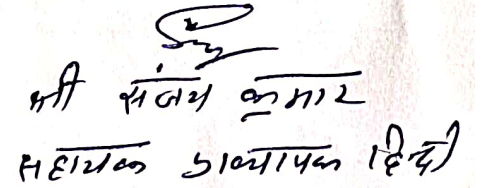 श्री संजय कुमार
सहायक प्राध्यापक हिन्दी